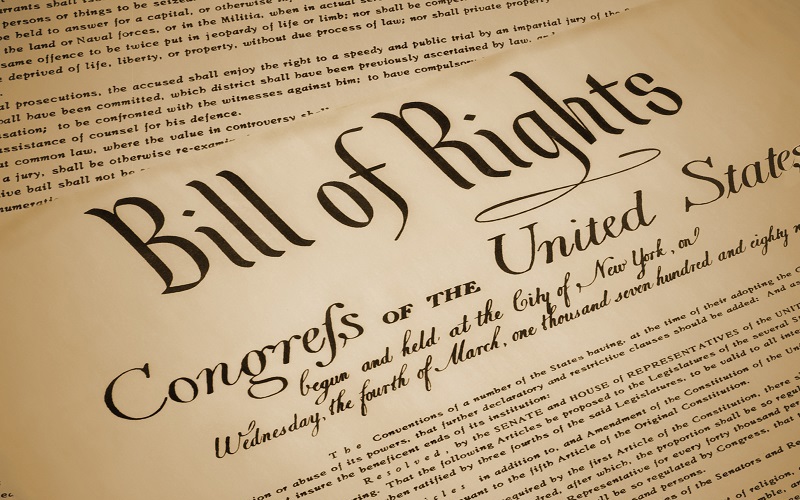 rrants shall
persons or things to be seized.
be held to answer for a capital, or otherwise
the land or Naval forces, or in the Militia, when in actual
same offence to be twice put in jeopardy of life or limb; nor shall be compel
deprived of life, liberty, or property, without due process of law; nor shall private property
al prosecutions, the accused shall enjoy the right to a speedy and public trial by an impartial jury of the
shall have been committed, which district shall have been previously ascertained by law, an
usation; to be confronted with the witnesses against him; to have compulsor
assistance of counsel for his defence.
at common law, where the value in controversy shall
a jury, shall be otherwise re-examin
ive bail shall not be
numerati
Bill of Rights
Congreſs OF THE United States
begun and held at the City of New York, on
Wednesday, the fourth of March, one thousand seven hundred and eighty n
The Conventions of a number of the States having, at the time of their adopting the C
or abuse of its powers, that further declaratory and restrictive clauses should be added: And as
insure the beneficent ends of its institution:
Resolved, by the SENATE and HOUSE of REPRESENTATIVES of the UNIT
ring. That the following Articles be proposed to the Legislatures of the several S
hen ratified by three fourths of the said Legislatures, to be valid to all inte
cles in addition to, and Amendment of the Constitution of the Un
uant to the fifth Article of the Original Constitution.
equired by the first Article of the Constitution, there s
d, after which, the proportion shall be so regu
ve for every forty thousand per
be so regulated by Congress, that
sand persons.
es of the Senators and Re
of religion,